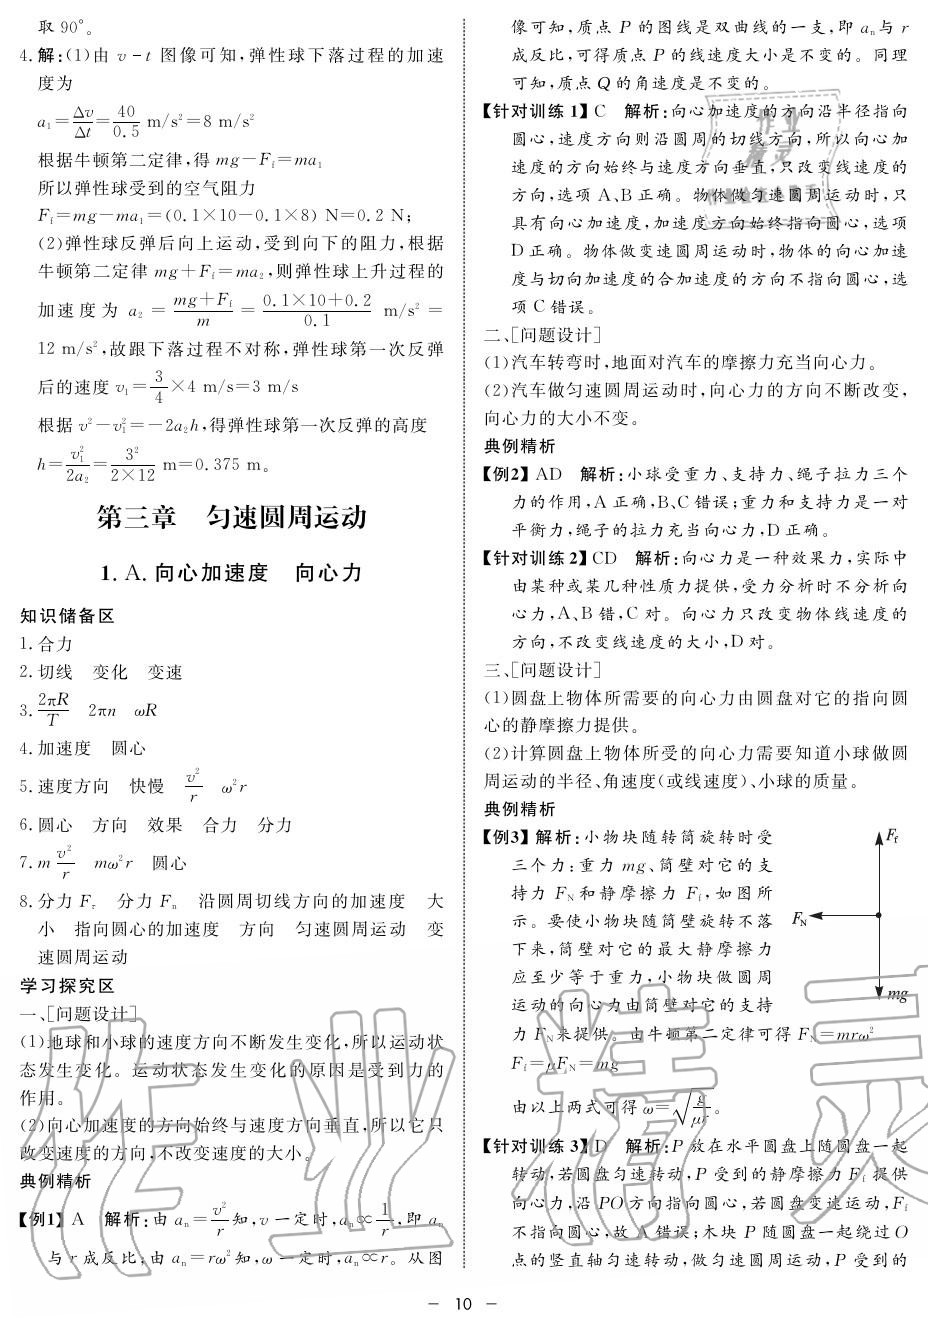 取 90°。
4. 解:(1)由 v-t 图像可知,弹性球下落过程的加速
度为
a₁=Δv/Δt=40/0.5 m/s²=8 m/s²
根据牛顿第二定律,得 mg-Ff=ma₁
所以弹性球受到的空气阻力
Ff=mg-ma₁=(0.1×10-0.1×8) N=0.2 N;
(2)弹性球反弹后向上运动,受到向下的阻力,根据
牛顿第二定律 mg+Ff=ma₂,则弹性球上升过程的
加速度为 a₂=(mg+Ff)/m=(0.1×10+0.2)/0.1 m/s²=
12 m/s²,故跟下落过程不对称,弹性球第一次反弹
后的速度 v₁=3/4×4 m/s=3 m/s
根据 v²-v₁²=-2a₂h,得弹性球第一次反弹的高度
h=v₁²/2a₂=3²/(2×12) m=0.375 m。
第三章 匀速圆周运动
1. A. 向心加速度 向心力
知识储备区
1. 合力
2. 切线 变化 变速
3. 2πR/T 2πn ωR
4. 加速度 圆心
5. 速度方向 快慢 v²/r ω²r
6. 圆心 方向 效果 合力 分力
7. m v²/r mω²r 圆心
8. 分力 Fτ 分力 Fn 沿圆周切线方向的加速度 大
小 指向圆心的加速度 方向 匀速圆周运动 变
速圆周运动
学习探究区
一、[问题设计]
(1)地球和小球的速度方向不断发生变化,所以运动状
态发生变化。运动状态发生变化的原因是受到力的
作用。
(2)向心加速度的方向始终与速度方向垂直,所以它只
改变速度的方向,不改变速度的大小。
典例精析
【例1】 A 解析:由 an=v²/r知,v 一定时,an∝1/r,即 an
与 r 成反比;由 an=rω²知,ω 一定时,an∝r。从图
像可知,质点 P 的图线是双曲线的一支,即 an与 r
成反比,可得质点 P 的线速度大小是不变的。同理
可知,质点 Q 的角速度是不变的。
【针对训练 1】 C 解析:向心加速度的方向沿半径指向
圆心,速度方向则沿圆周的切线方向,所以向心加
速度的方向始终与速度方向垂直,只改变线速度的
方向,选项 A、B 正确。物体做匀速圆周运动时,只
具有向心加速度,加速度方向始终指向圆心,选项
D 正确。物体做变速圆周运动时,物体的向心加速
度与切向加速度的合加速度的方向不指向圆心,选
项 C 错误。
二、[问题设计]
(1)汽车转弯时,地面对汽车的摩擦力充当向心力。
(2)汽车做匀速圆周运动时,向心力的方向不断改变,
向心力的大小不变。
典例精析
【例2】 AD 解析:小球受重力、支持力、绳子拉力三个
力的作用,A 正确,B、C 错误;重力和支持力是一对
平衡力,绳子的拉力充当向心力,D 正确。
【针对训练 2】 CD 解析:向心力是一种效果力,实际中
由某种或某几种性质力提供,受力分析时不分析向
心力,A、B 错,C 对。向心力只改变物体线速度的
方向,不改变线速度的大小,D 对。
三、[问题设计]
(1)圆盘上物体所需要的向心力由圆盘对它的指向圆
心的静摩擦力提供。
(2)计算圆盘上物体所受的向心力需要知道小球做圆
周运动的半径、角速度(或线速度)、小球的质量。
典例精析
【例3】 解析:小物块随转筒旋转时受
三个力:重力 mg、筒壁对它的支
持力 FN 和静摩擦力 Ff,如图所
示。要使小物块随筒壁旋转不落
下来,筒壁对它的最大静摩擦力
应至少等于重力,小物块做圆周
运动的向心力由筒壁对它的支持
力 FN来提供。由牛顿第二定律可得 FN=mrω²
Ff=μFN=mg
由以上两式可得 ω=√(g/μr)。
Ff
FN
mg
【针对训练 3】 D 解析:P 放在水平圆盘上随圆盘一起
转动,若圆盘匀速转动,P 受到的静摩擦力 Ff 提供
向心力,沿 PO 方向指向圆心,若圆盘变速运动,Ff
不指向圆心,故 A 错误;木块 P 随圆盘一起绕过 O
点的竖直轴匀速转动,做匀速圆周运动,P 受到的
- 10 -
作业精灵